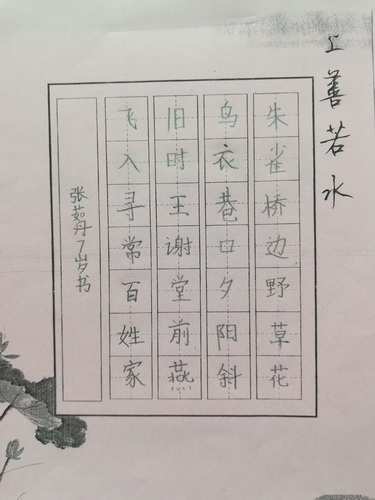 上善若水
朱雀桥边野草花
乌衣巷口夕阳斜
旧时王谢堂前燕
飞入寻常百姓家
张茹丹7岁书